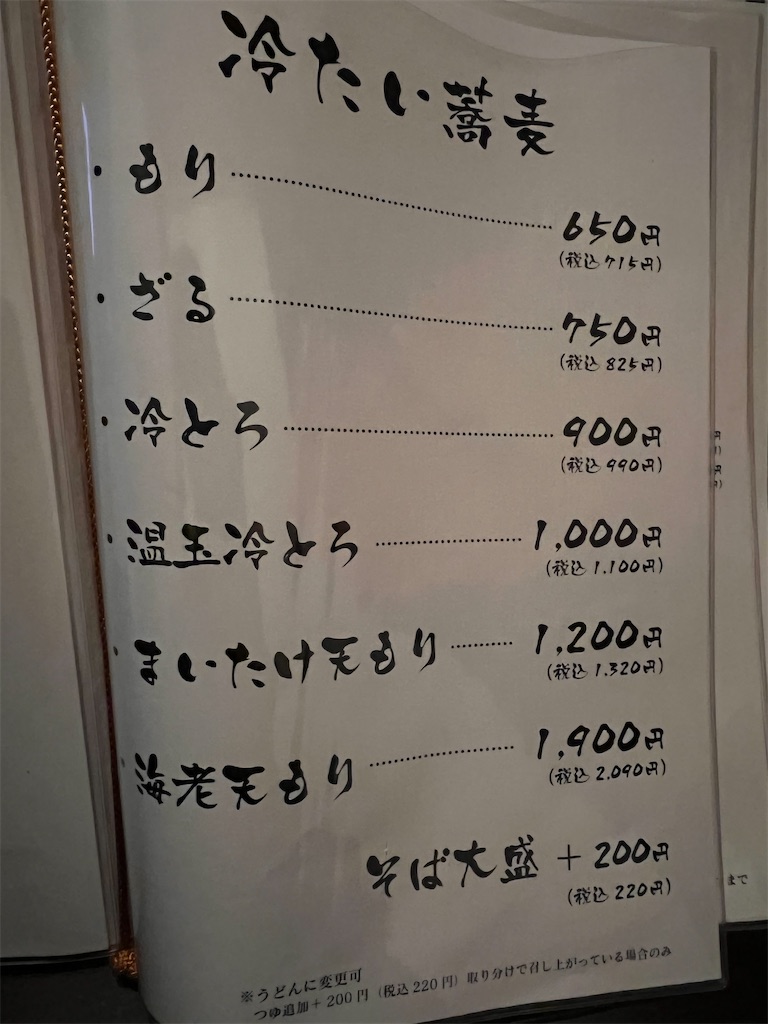 冷たい蕎麦
・もり 650円
(税込715円)
・ざる 750円
(税込825円)
・冷とろ 900円
(税込990円)
・温玉冷とろ 1,000円
(税込1.100円)
・まいたけ天もり 1,200円
(税込1.320円)
・海老天もり 1,900円
(税込2.090円)
そば大盛 +200円
(税込220円)
※うどんに変更可
つゆ追加+200円(税込220円)取り分けで召し上がっている場合のみ
まで